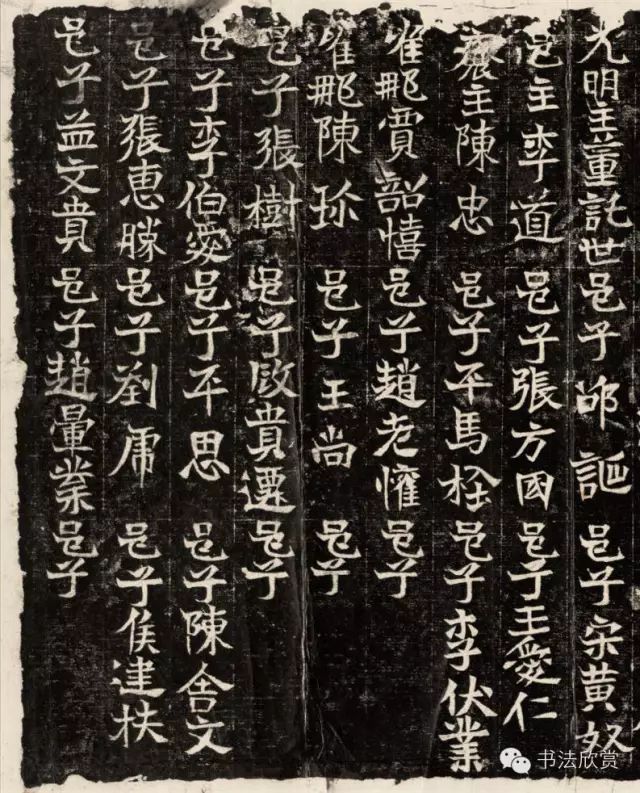 光明主董託世邑子邰詎邑子宋黄奴
邑主李道邑子張方國邑子王愛仁
齋主陳忠邑子平馬栓邑子李伏業
唯那賈韶憘邑子趙老懽邑子
唯那陳珎邑子王尚邑子
邑子張樹邑子殹貴遷邑子
邑子李伯愛邑子平思邑子陳舍文
邑子張惠勝邑子劉席邑子侯建扶
邑子益文貴邑子趙暈業邑子
书法欣赏